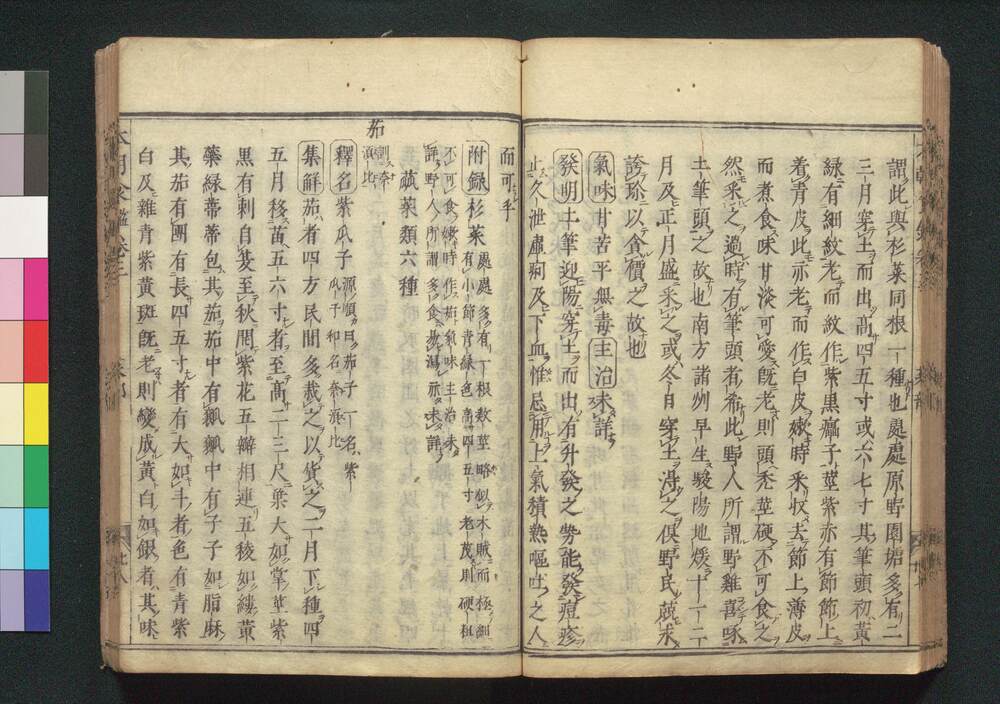 謂此與杉菜同根一種也處處原野園墻多有二
三月穿土而出高四五寸或六七寸其筆頭初黃
綠有細紋老而紋作紫黑癟子莖紫亦有節節上
着青皮此亦老而作白皮嫩時采收去節上薄皮
而煮食味甘淡可愛既老則頭禿莖硬不可食之
然采之過時有筆頭者希此野人所謂野雞喜啄
土筆頭之故也南方諸州早生駿陽地煖十一十二
月及正月盛采之或冬自穿土浔之俱野民競求
誇珍以貪價之故也
氣味甘苦平無毒主治未詳
發明土筆迎陽穿土而出有升發之勢能發痘疹
止久泄虛痢及下血惟忌用上氣積熱嘔吐之人
而可乎
附録杉菜處處多有一根數莖略似木賊而極細
有小節青緑色高四五寸老茂則硬粗
不可食嫩時作茹氣味主治未
詳野人所謂多食昜湯亦未詳
蓏菜類六種
茄訓奈須比
釋名紫瓜子源順曰茄子一名紫
瓜子和名奈須比
集解茄者四方民間多栽之以貨之二月下種四
五月移苗五六寸者至高二三尺葉大如掌莖紫
黑有刺自夏至秋開紫花五瓣相連五稜如縷黃
蘂緑蒂蒂包其茄茄中有瓤瓤中有子子如脂麻
其茄有團有長四五寸者有大如斗者色有青紫
白及雜青紫黃斑既老則變成黃白如銀者其味